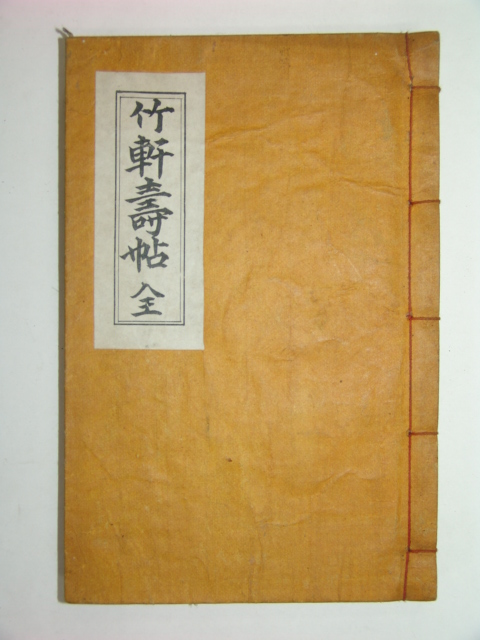 竹軒壽帖 全